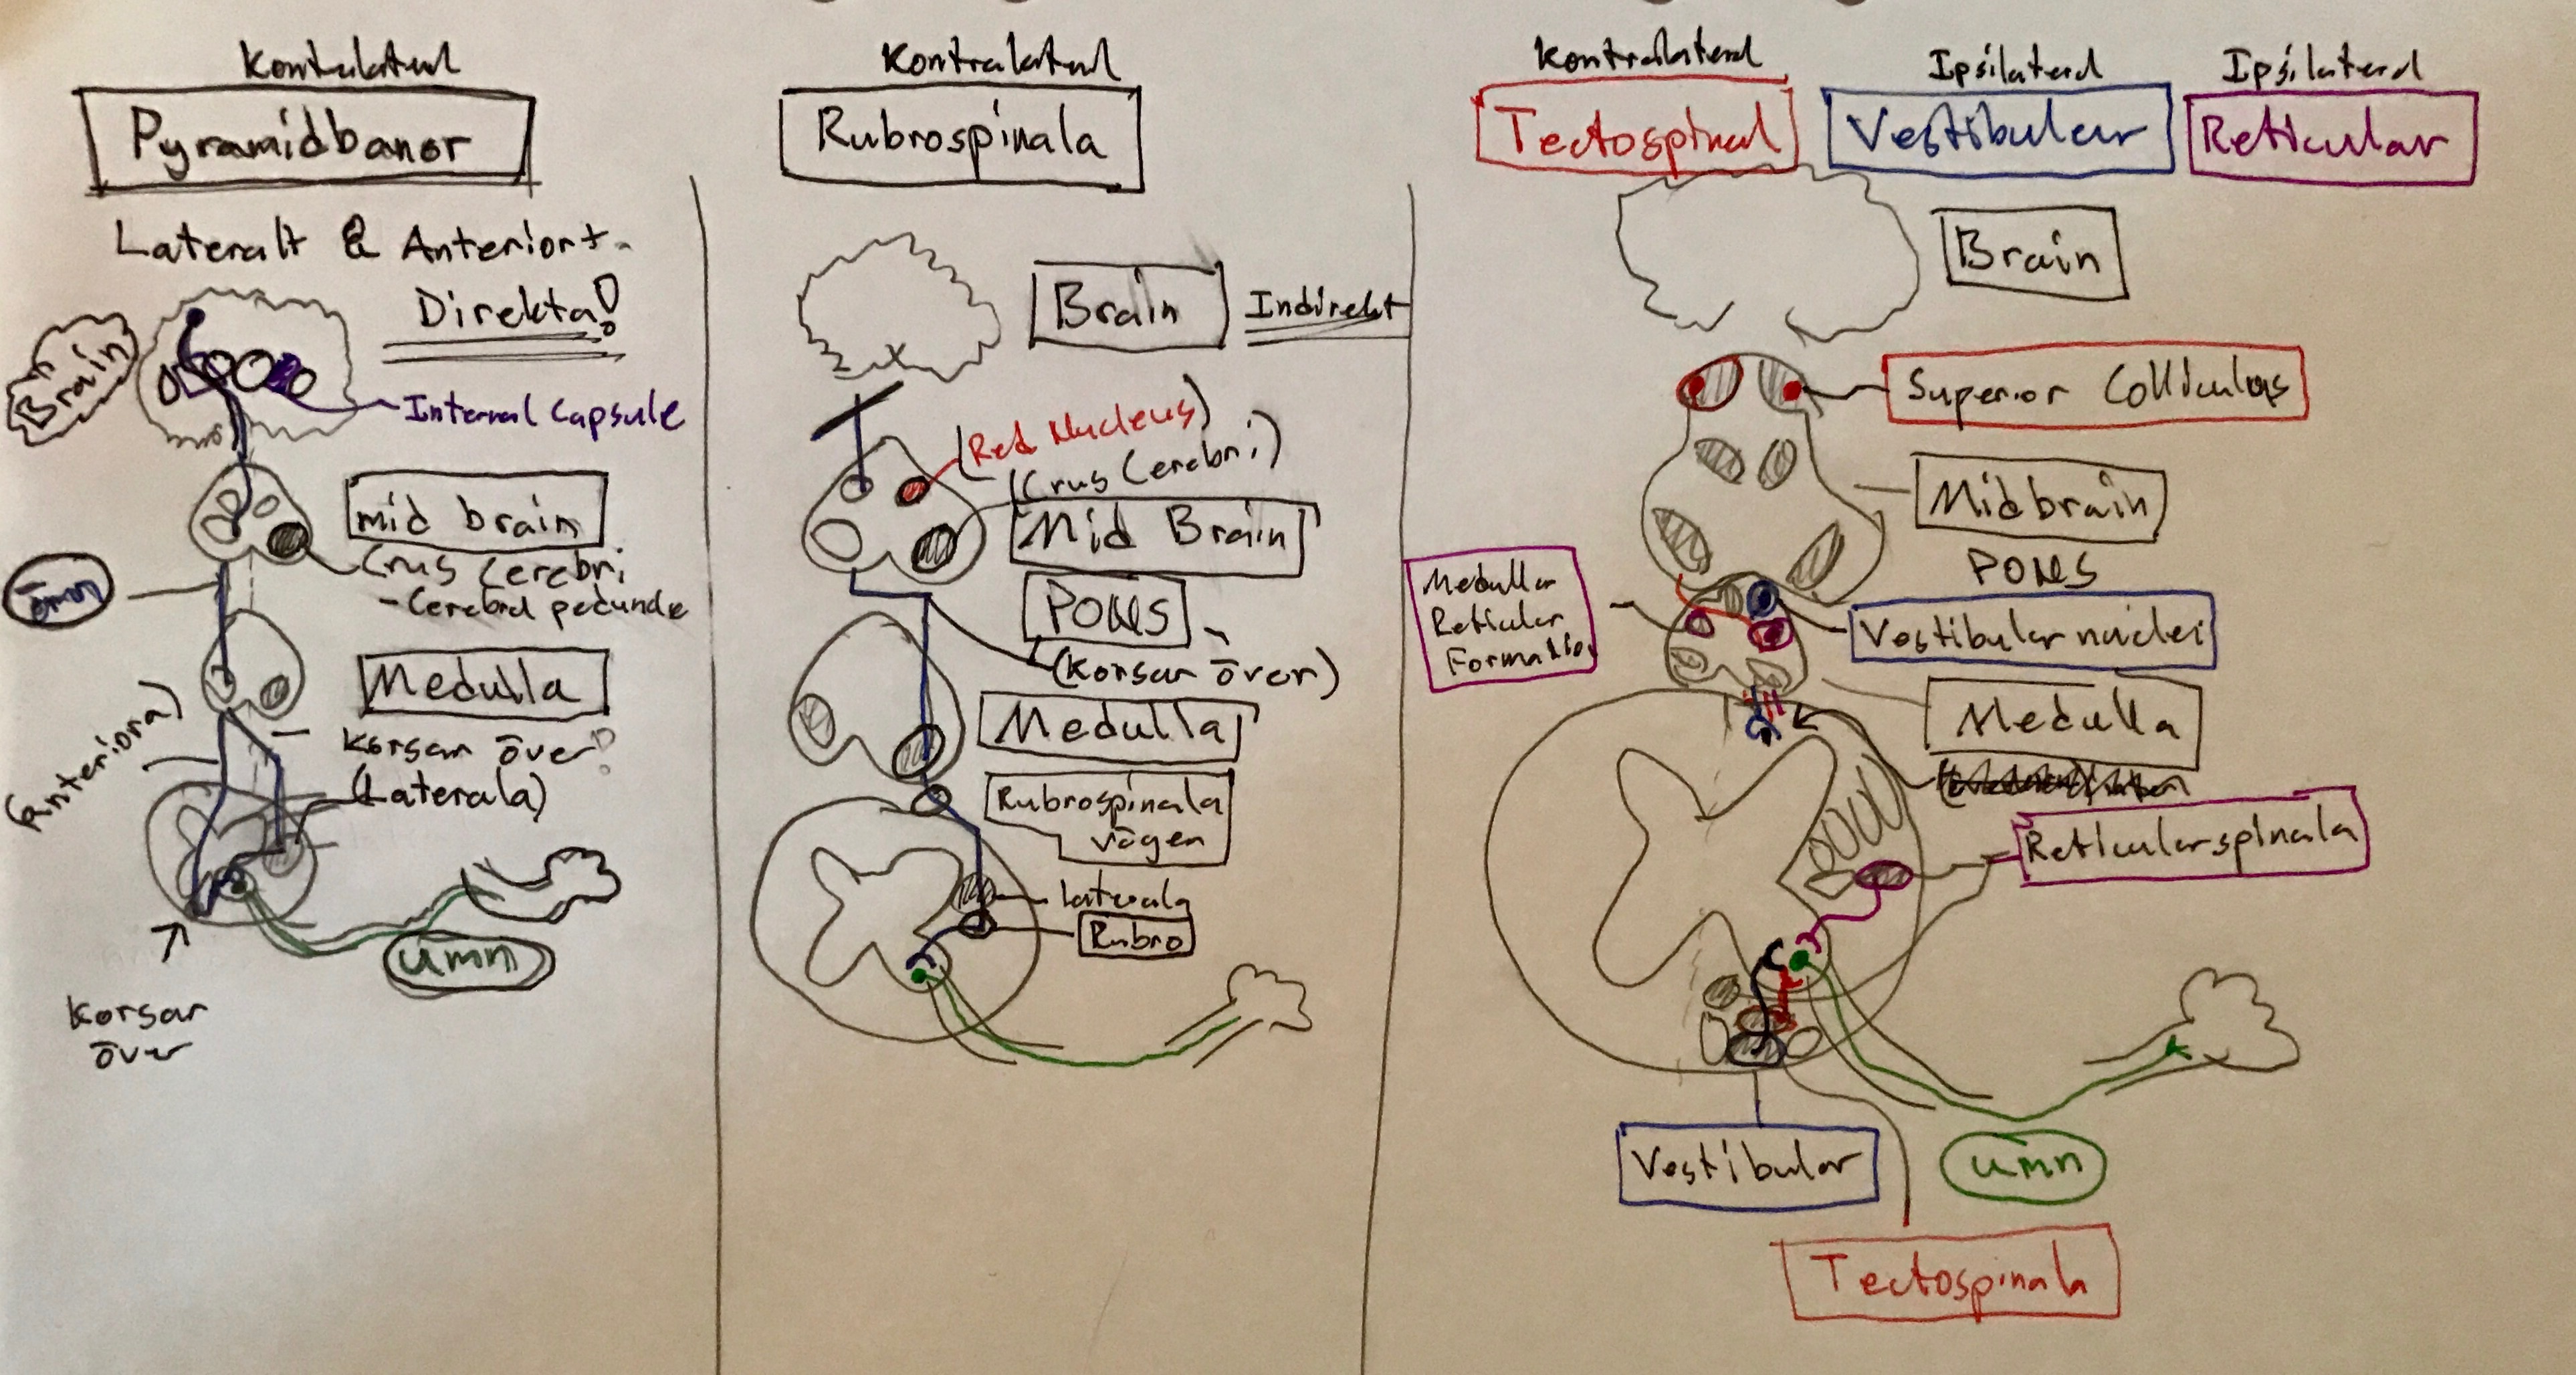 Kontralateral
Pyramidbanor
Lateralt & Anteriort
Direkta!
Brain
Internal Capsule
mid brain
Crus Cerebri
-Cerebral peduncle
ömn
Medulla
Korsar över!
(Laterala)
(Anteriora)
umn
Korsar
över
Kontralateral
Rubrospinala
Brain
Indirekt
(Red Nucleus)
(Crus Cerebri)
Mid Brain
PONS
(Korsar över)
Medulla
Rubrospinala
vägen
laterala
Rubro
Kontralateral
Tectospinal
Ipsilateral
Vestibular
Ipsilateral
Reticular
Brain
Superior Colliculus
Midbrain
PONS
Medullar
Reticular
Formation
Vestibular nuclei
Medulla
Reticularspinala
Vestibular
umn
Tectospinala